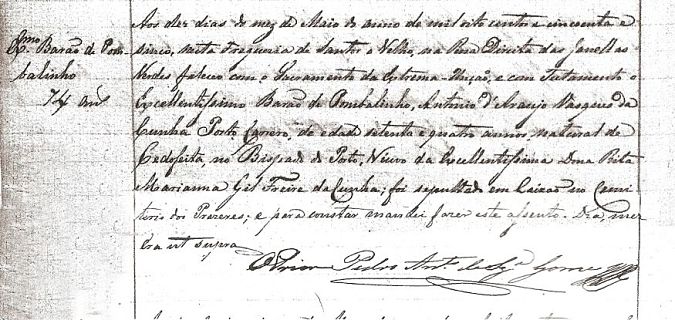 Exmo Barão de Pom
balinho
74 ans
Aos dez dias do mez de Maio do anno de mil oito centos e cincoenta e
cinco, nesta Freguezia de Santos o Velho, na Rua Direita das Janellas
Verdes faleceo com o Sacramento da Extrema-Unção, e com Testamento o
Excellentissimo Barão de Pombalinho, Antonio d'Araujo Vasques da
Cunha Porto Carrero, de edade setenta e quatro annos, natural de
Cedofeita, no Bispado do Porto, Viuvo da Excellentissima Dna Rita
Marianna Gil Freire da Cunha; foi sepultado em Caixão no Cemi
terio dos Prazeres; e para constar mandei fazer este assento. Dia, mez
era ut supra
O Prior Pedro Ant.